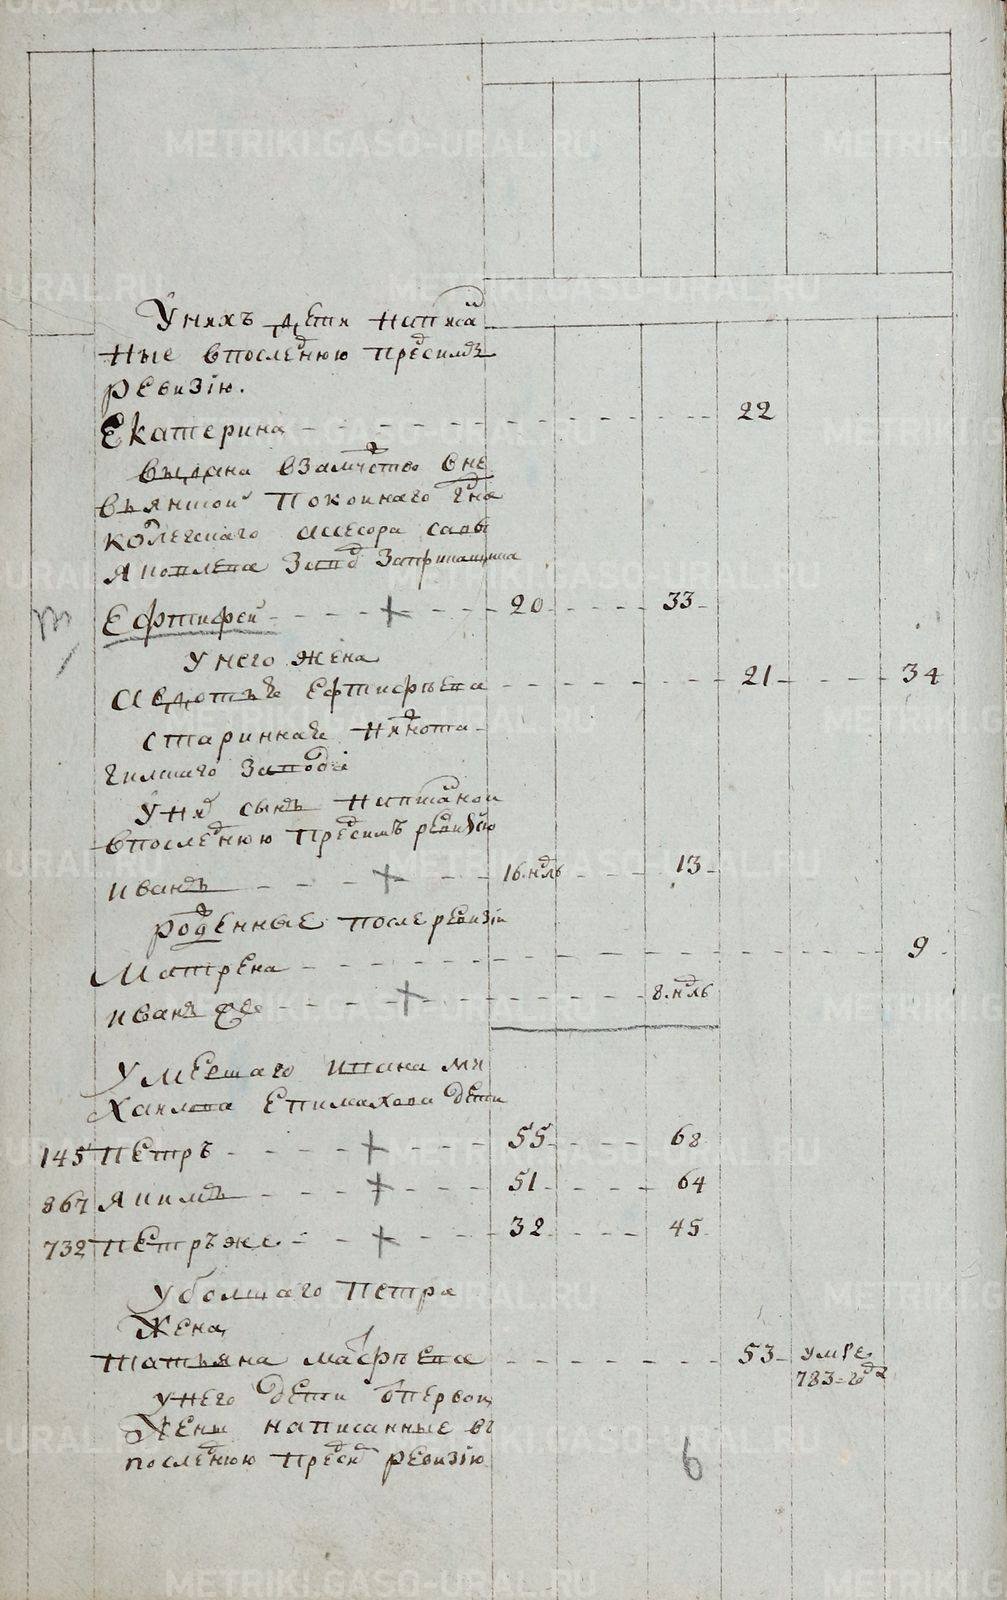 METRIKI.GASO-URAL.RU
У нихъ дети написа
ные впоследнюю пред симъ
ревизію.
Екатерина 22
выдана взамужство вне
вьянской покойнаго г̃на
колежскаго асесора савы
яковлева завод
Ефтифей 20 33
У него жена
Авдотья Ефтифьева 21 34
старинная нижнота
гилскаго заводя
У них сынъ написаной
впоследнюю пред симъ ревизію
иванъ 16. нѣдль 13
рожденные после ревизіи
Матрена 9
иванъ же 8. нѣдль
Умершаго ивана ми
хаилова Епимахова дети
145 Петръ 55 68
867 Якимъ 51 64
732 Петръ же 32 45
у болшаго петра
Жена
Татьяна 53 умре
783 году
у него дети от первои
Жены написанные въ
последнюю пред сим ревизію
6